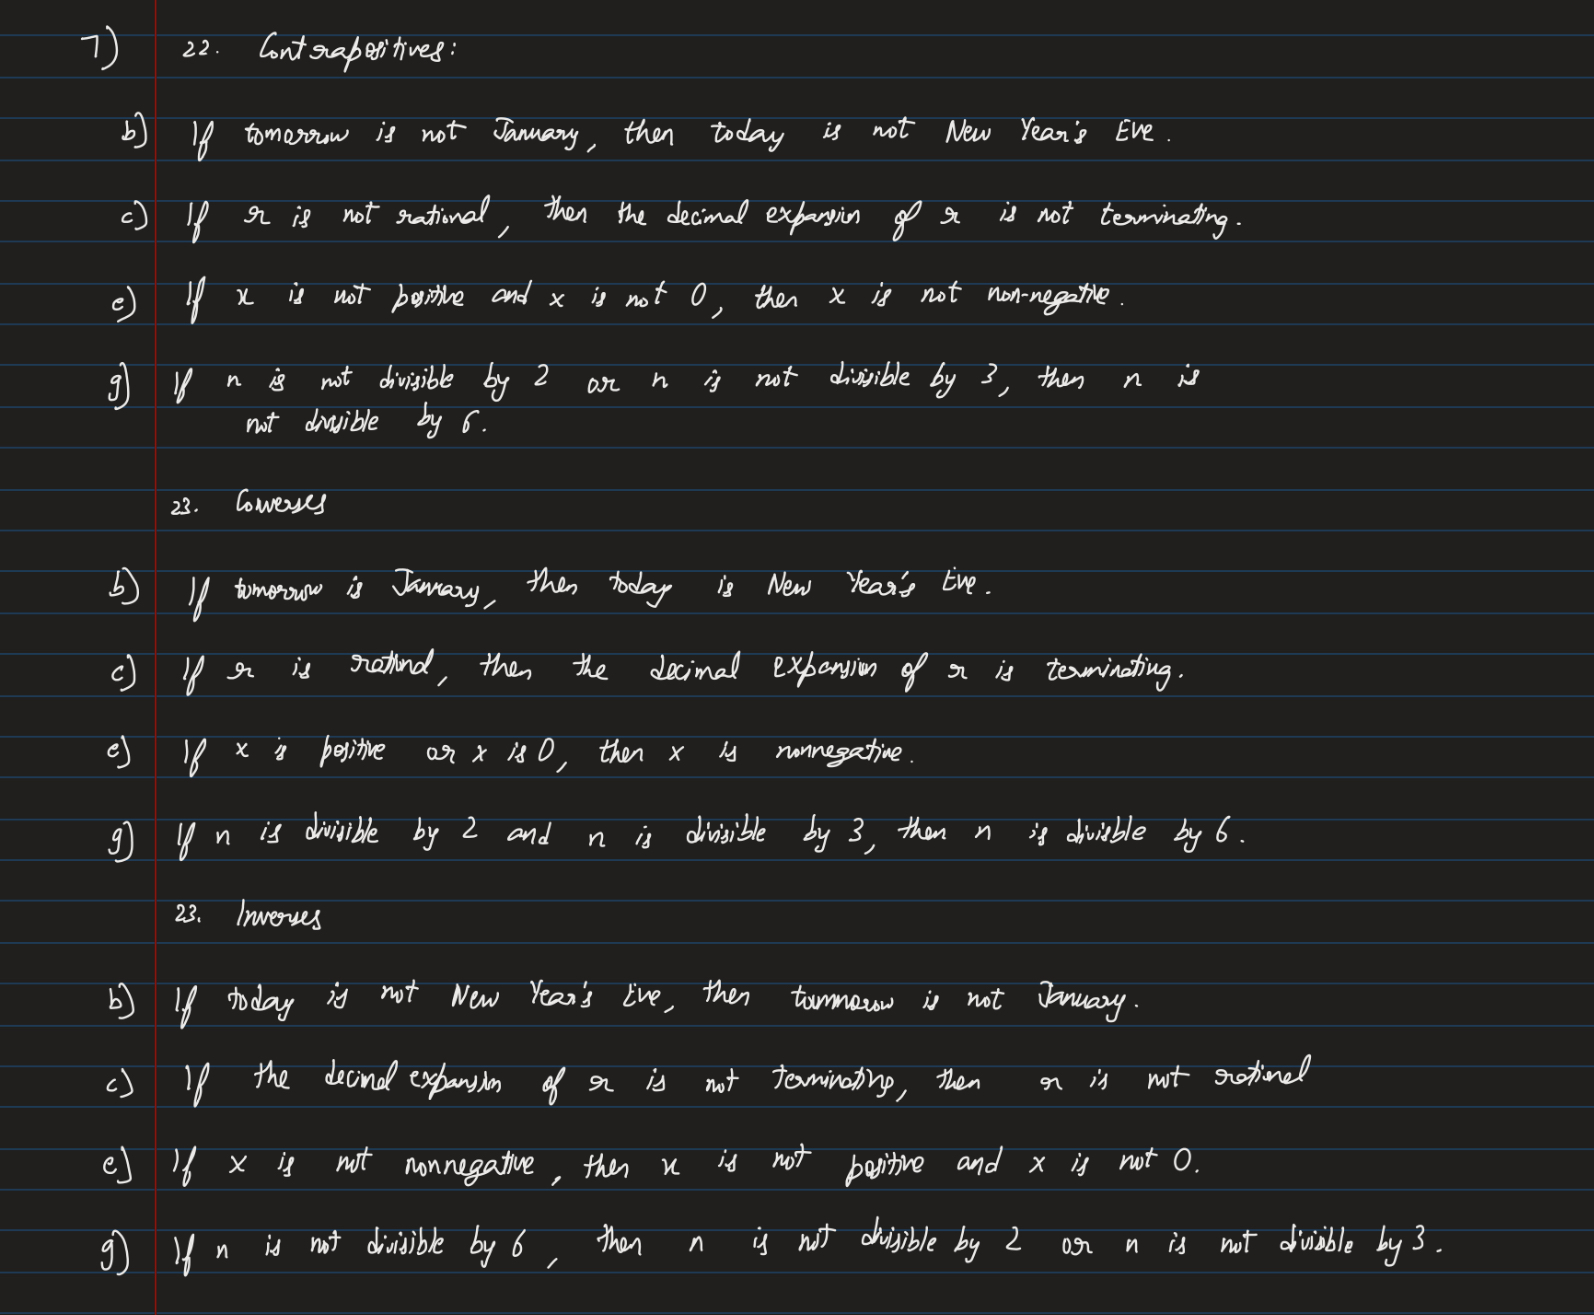 7) 22. Contrapositives:
b) If tomorrow is not January, then today is not New Year's Eve.
c) If r is not rational, then the decimal expansion of r is not terminating.
e) If x is not positive and x is not 0, then x is not non-negative.
g) If n is not divisible by 2 or n is not divisible by 3, then n is
not divisible by 6.
23. Converses
b) If tomorrow is January, then today is New Year's Eve.
c) If r is rational, then the decimal expansion of r is terminating.
e) If x is positive or x is 0, then x is nonnegative.
g) If n is divisible by 2 and n is divisible by 3, then n is divisble by 6.
23. Inverses
b) If today is not New Year's Eve, then tommorow is not January.
c) If the decimal expansion of r is not terminating, then r is not rational
e) If x is not nonnegative, then x is not positive and x is not 0.
g) If n is not divisible by 6, then n is not divisible by 2 or n is not divisible by 3.